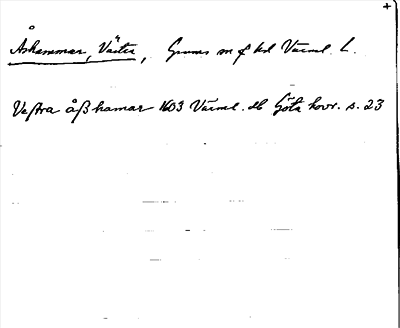 +
Åshammar, Väster, Grums sn o hd Värml. L.
Vestra åsshamar 1603 Värml. Hb Göta hovr. s. 23